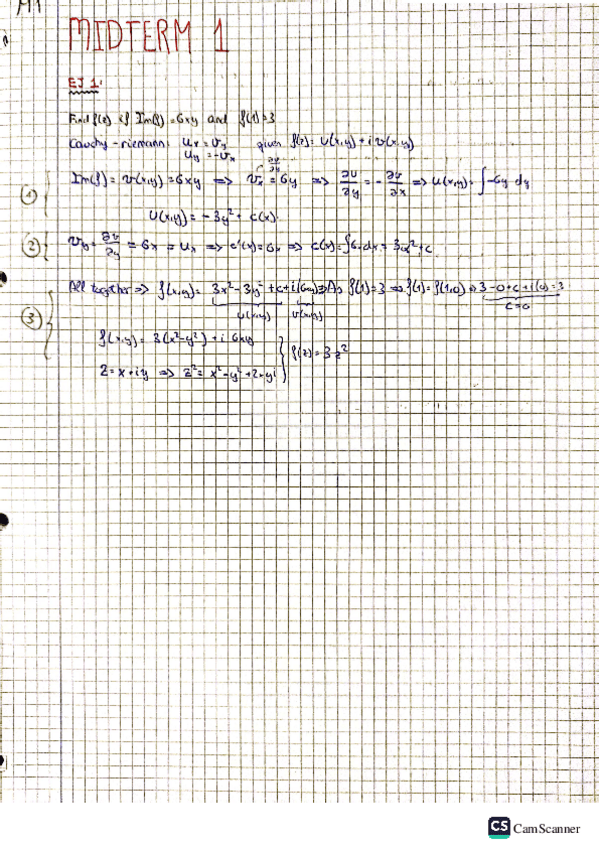 M1
MIDTERM 1
EJ 1:
Find f(z) if Im(f) = 6xy and f(1)=3
Cauchy-riemann: ux = vy given f(z) = u(x,y) + i v(x,y)
uy = -vx
① Im(f) = v(x,y) = 6xy => vx = 6y => ∂u/∂y = - ∂v/∂x => u(x,y) = ∫ -6y dy
u(x,y) = -3y² + c(x)
② vy = ∂v/∂y = 6x = ux => c'(x) = 6x => c(x) = ∫6x dx = 3x² + c
③ All together => f(x,y) = 3x² - 3y² + c + i(6xy) => As f(1) = 3 => f(1) = f(1,0) => 3 - 0 + c + i(0) = 3
u(x,y) v(x,y) c=0
f(x,y) = 3(x²-y²) + i 6xy
z = x + iy => z² = x² - y² + 2xyi } f(z) = 3z²
CS CamScanner